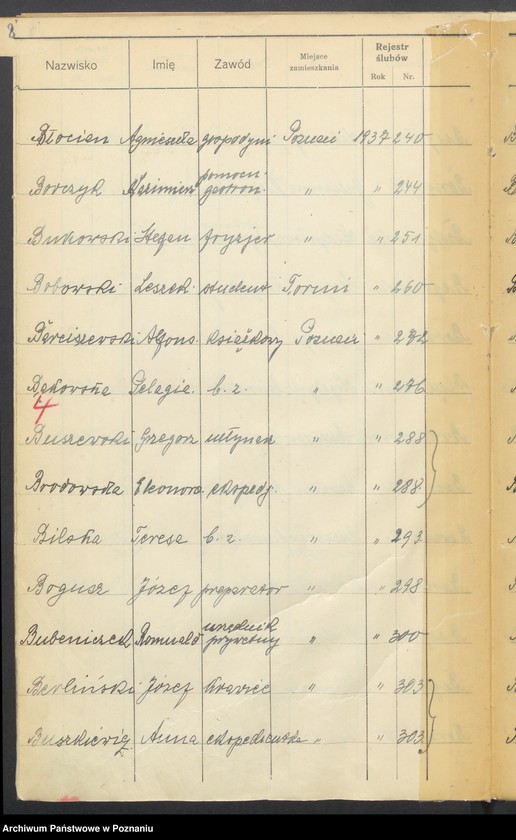 8
Nazwisko Imię Zawód Miejsce zamieszkania Rejestr ślubów Rok Nr.
Błocian Agnieszka gospodyni Poznań 1937 240
Borczyk Kazimierz pomocn. gastron. " " 244
Bukowski Stefan fryzjer " " 251
Bobowski Leszek student Toruń " 260
Barciszewski Alfons książkowy Poznań " 272
Bąkowska Pelagia b. z. " " 276
4
Buszewski Grzegorz młynarz " " 288
Brodowska Eleonora ekspedj. " " 288
Bilska Teresa b. z. " " 293
Bogusz Józef preparator " " 298
Bubeniczek Romuald urzędnik prywatny " " 300
Berliński Józef krawiec " " 303
Buszkiewicz Anna ekspedientka " " 303
Archiwum Państwowe w Poznaniu